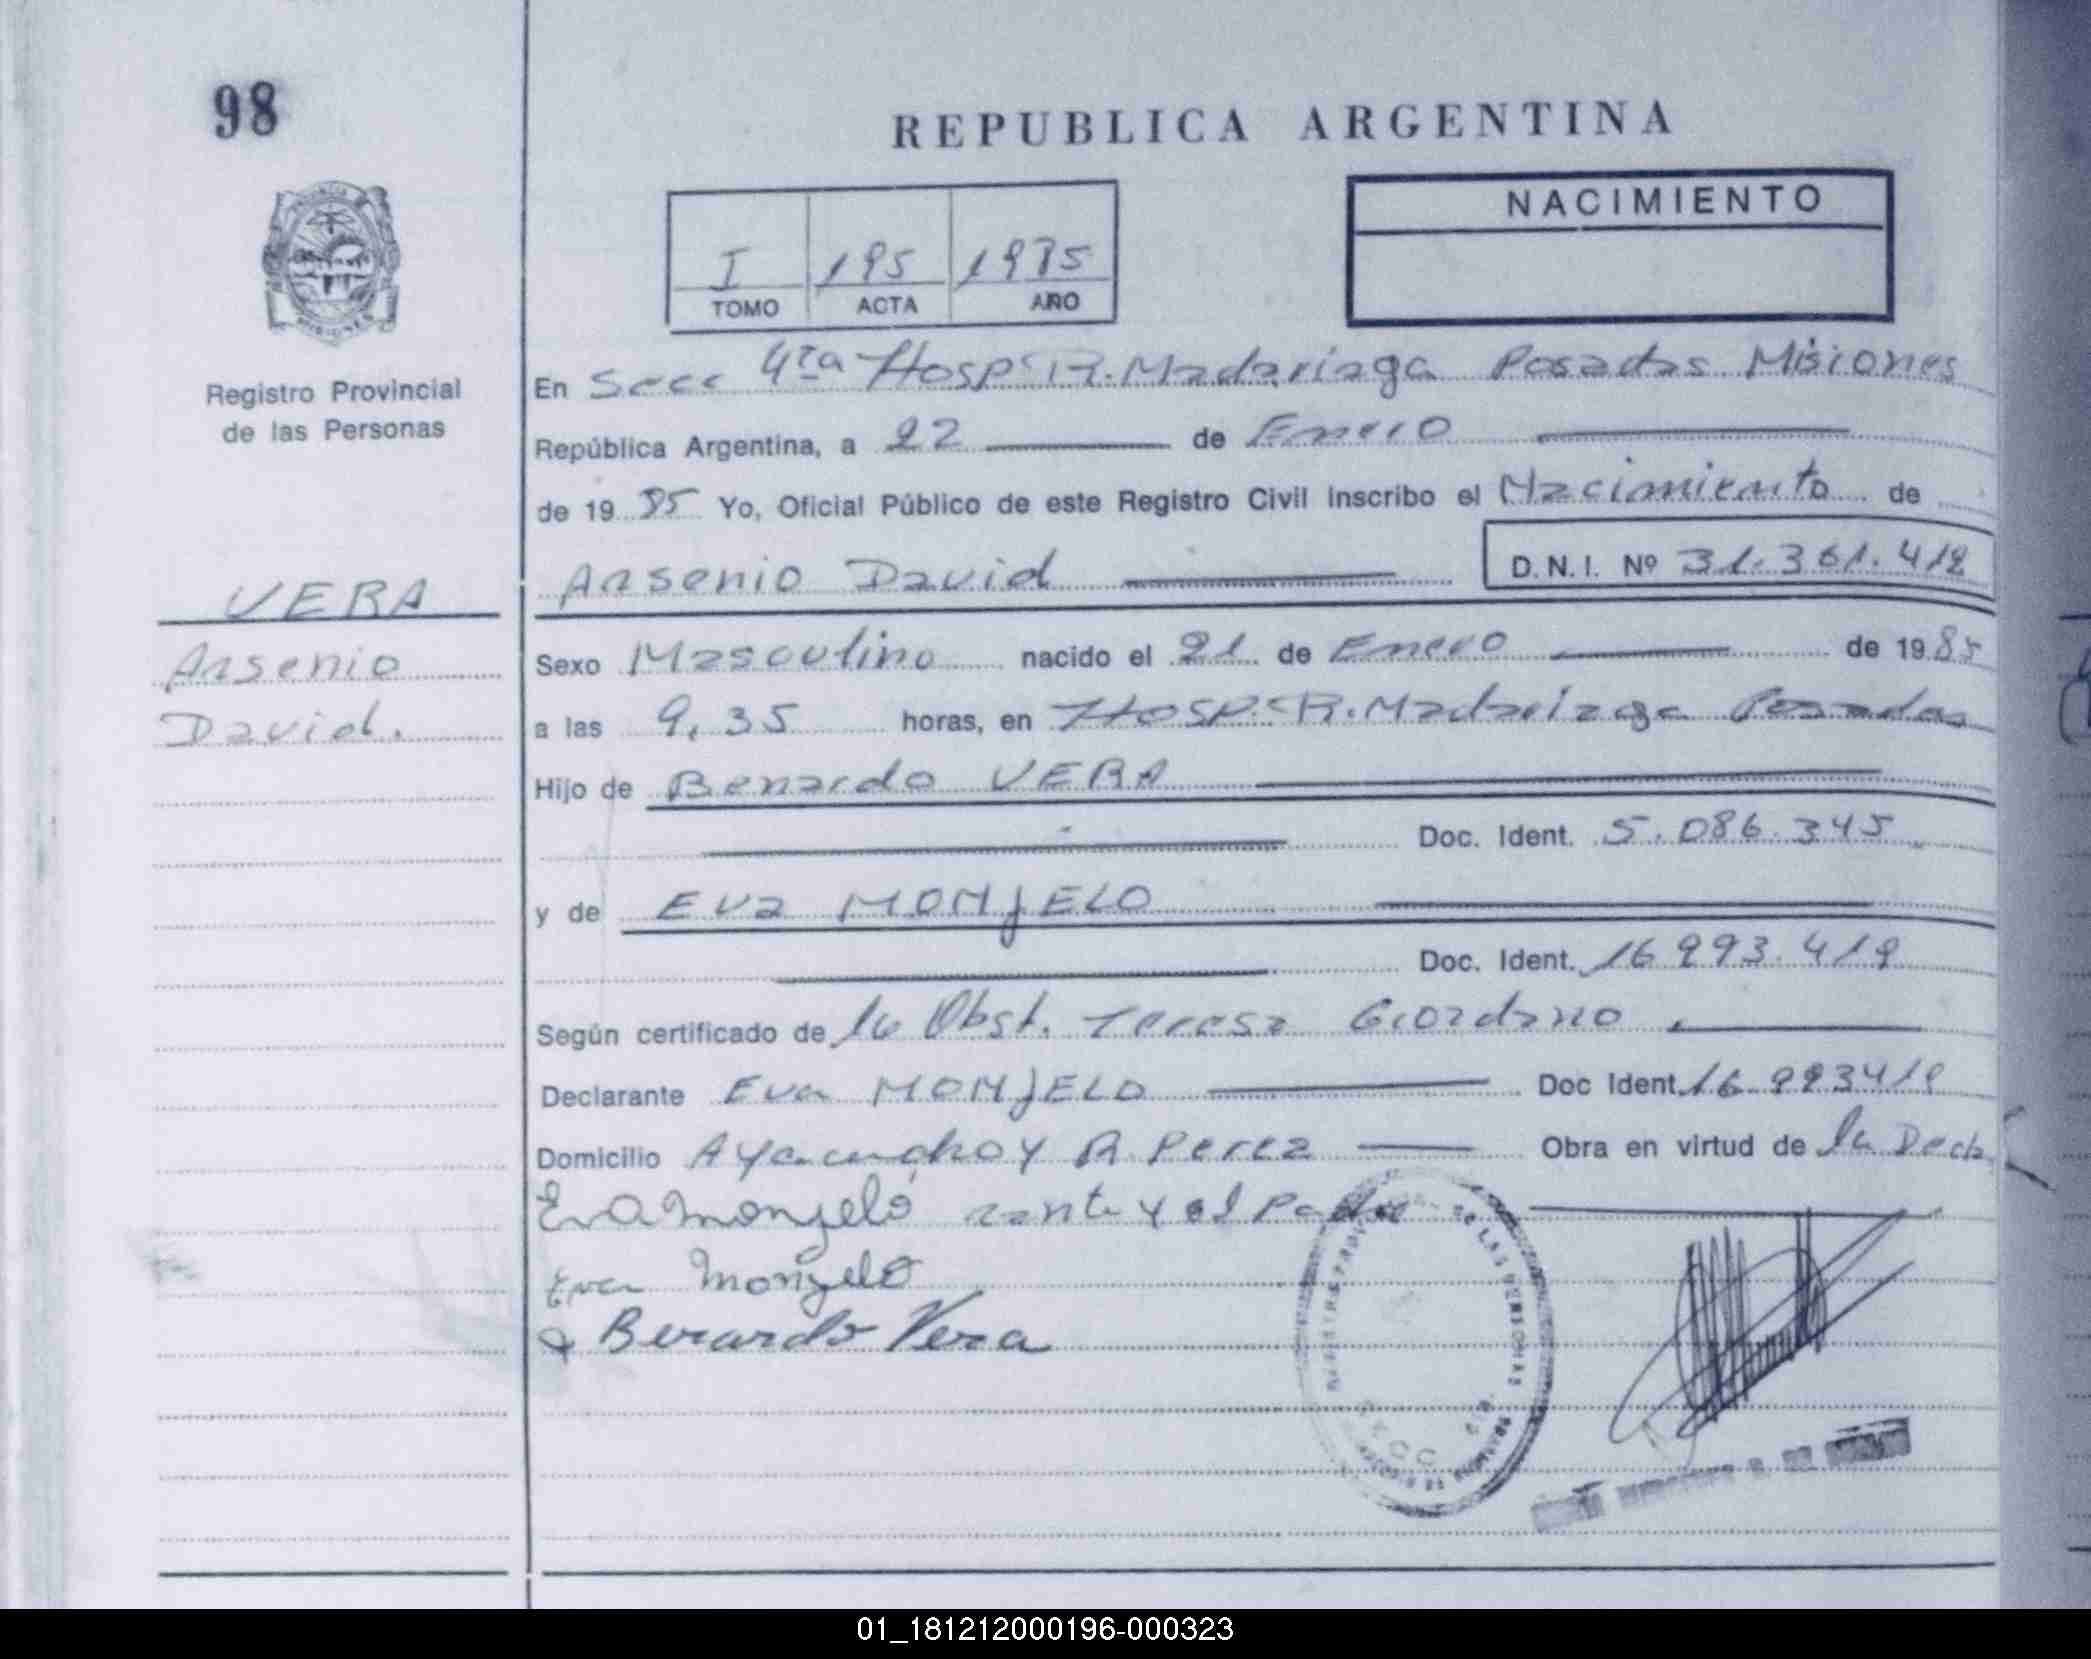 98
REPUBLICA ARGENTINA
NACIMIENTO
I 195 1985
TOMO ACTA AÑO
Registro Provincial
de las Personas
En Secc 4ta Hosp R. Madariaga Posadas Misiones
República Argentina, a 22 de Enero
de 19 85 Yo, Oficial Público de este Registro Civil inscribo el Nacimiento de
Arsenio David D.N.I. Nº 31.361.419
VERA
Arsenio
David.
Sexo Masculino nacido el 21 de Enero de 19 85
a las 9,35 horas, en Hosp. R. Madariaga Posadas
Hijo de Berardo VERA
Doc. Ident. 5.086.345
y de Eva MONJELO
Doc. Ident. 16 993.419
Según certificado de la Obst. Teresa Giordano
Declarante Eva MONJELO Doc Ident. 16 993419
Domicilio Ayacucho y R. Perez Obra en virtud de la Decla
Eva Monjelo rante y el Padre
Eva Monjelo
Berardo Vera
01_181212000196-000323